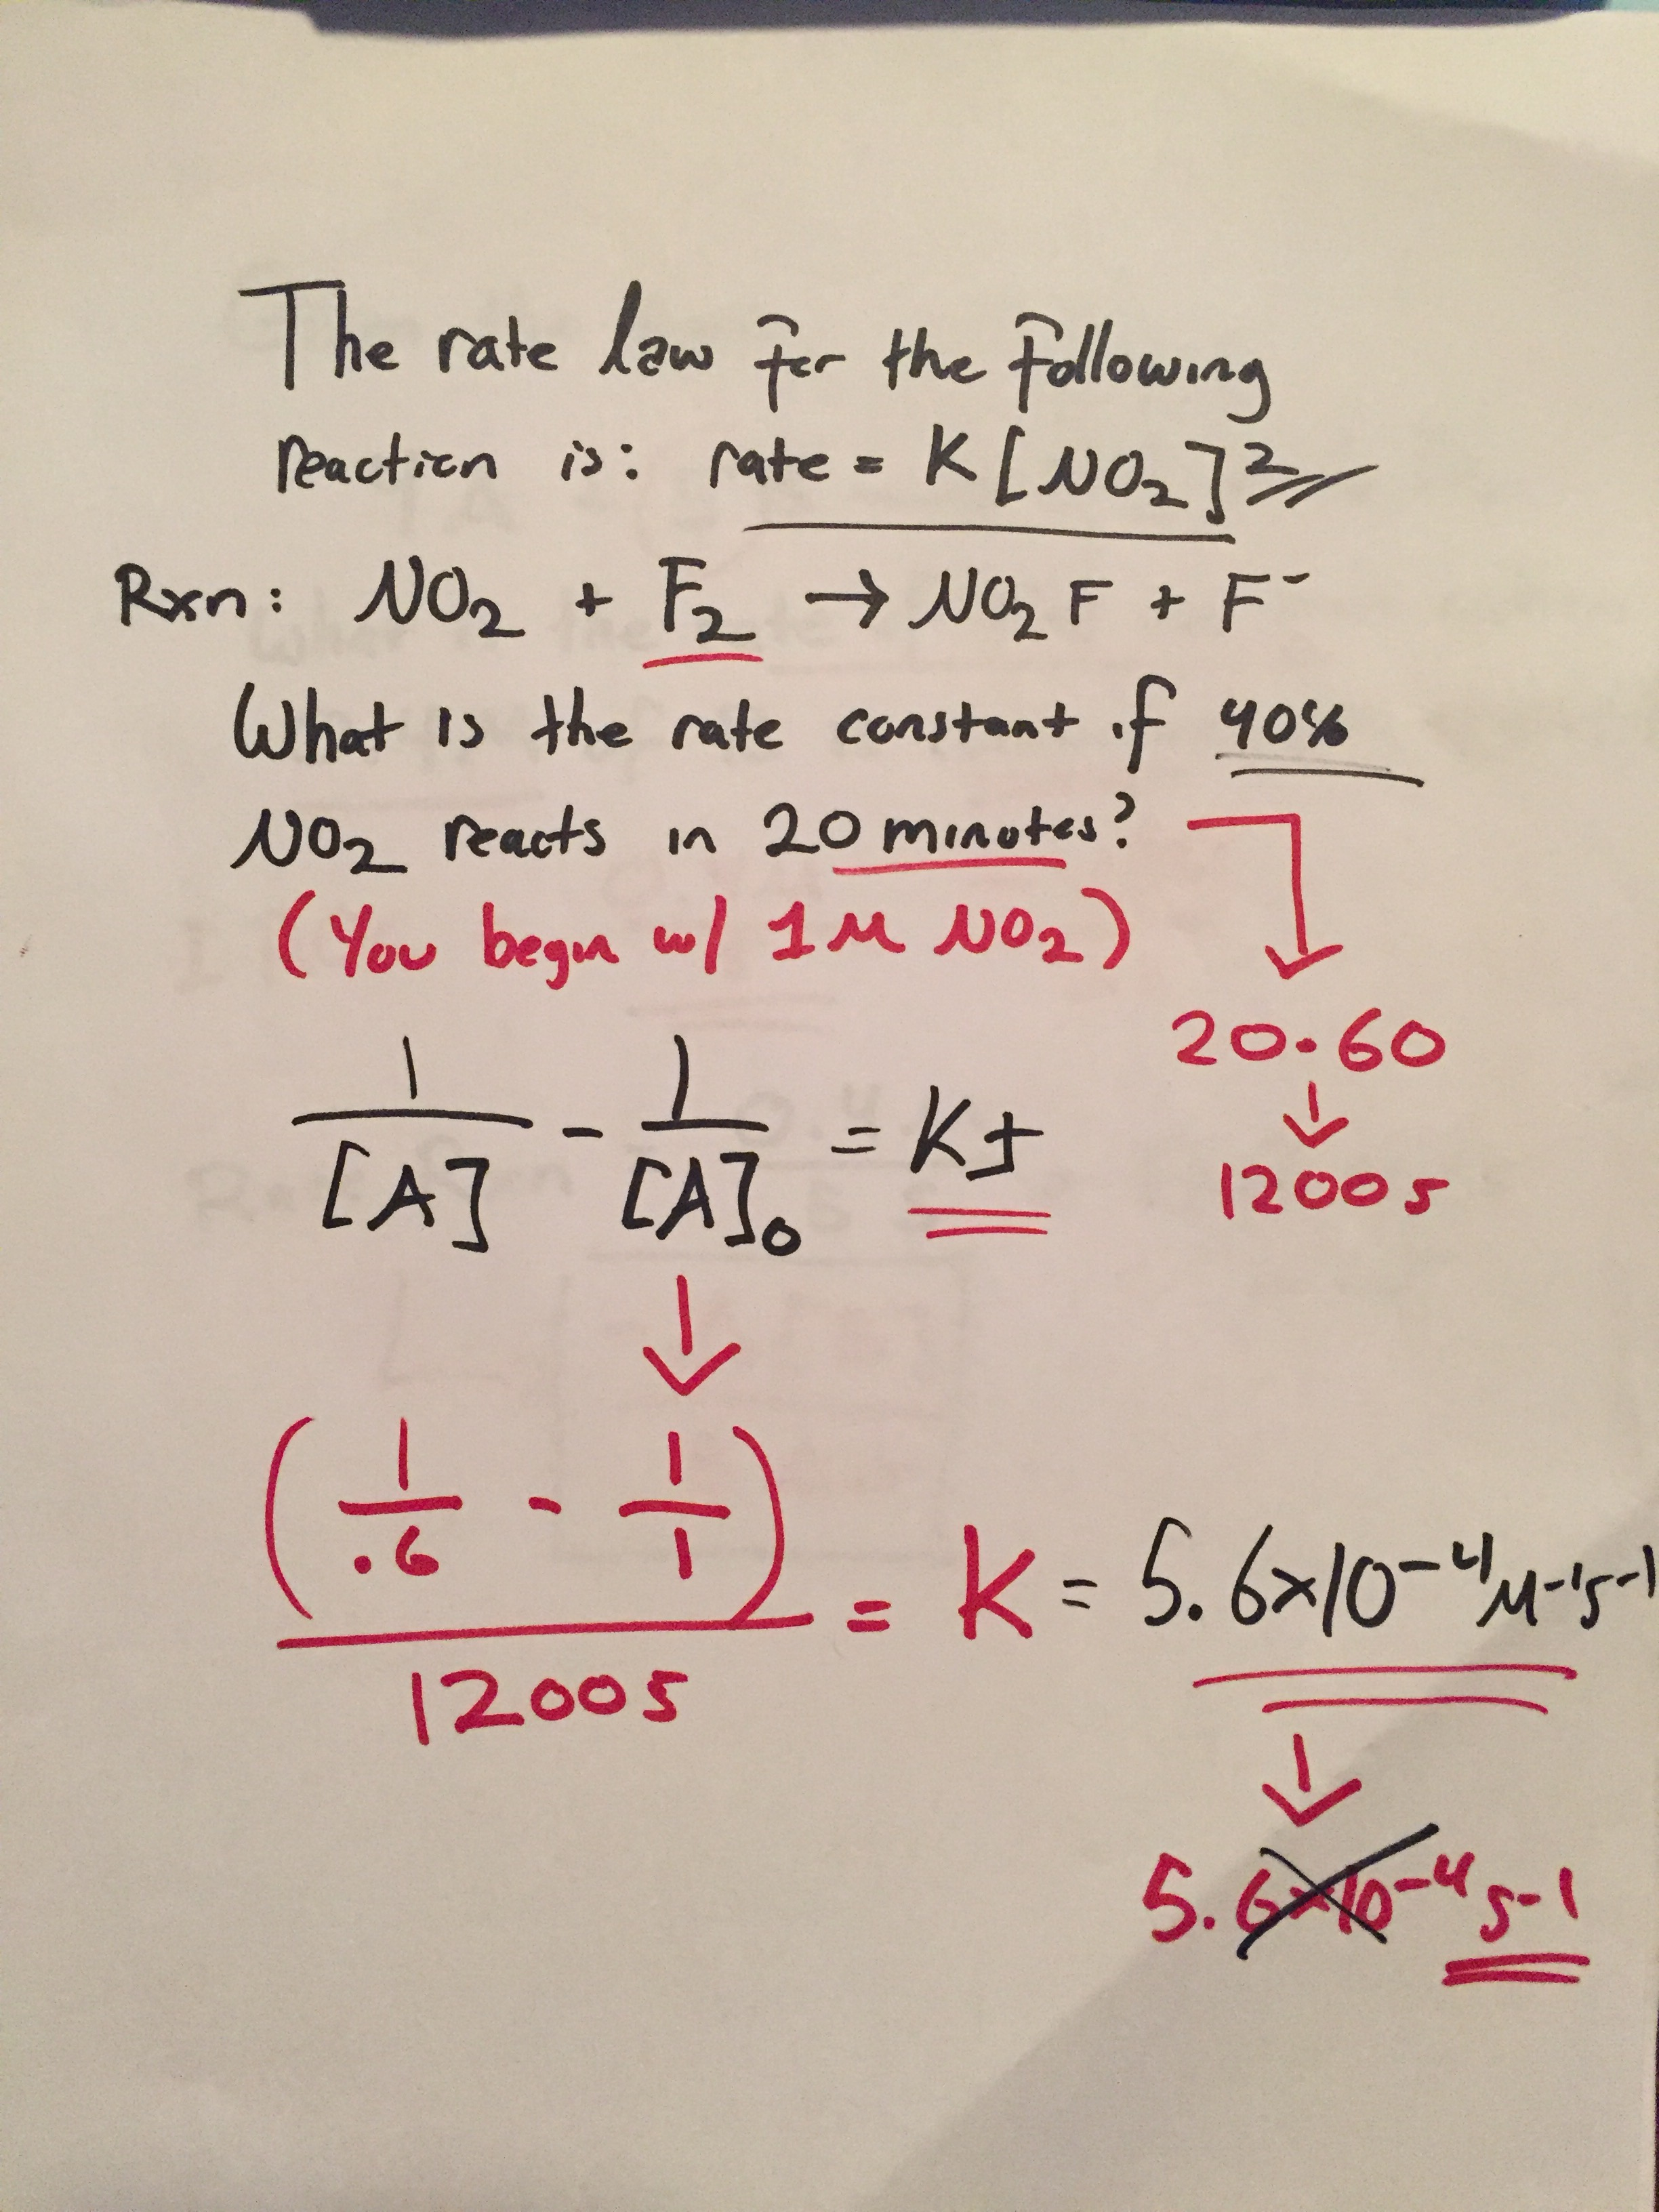 The rate law for the following
reaction is: rate = K[NO₂]²
Rxn: NO₂ + F₂ → NO₂F + F⁻
What is the rate constant if 40%
NO₂ reacts in 20 minutes?
(You begin w/ 1M NO₂)
20·60
↓
1200s
1/[A] - 1/[A]₀ = Kt
↓
(1/.6 - 1/1)/1200s = K = 5.6x10⁻⁴M⁻¹s⁻¹
↓
5.6x10⁻⁴s⁻¹